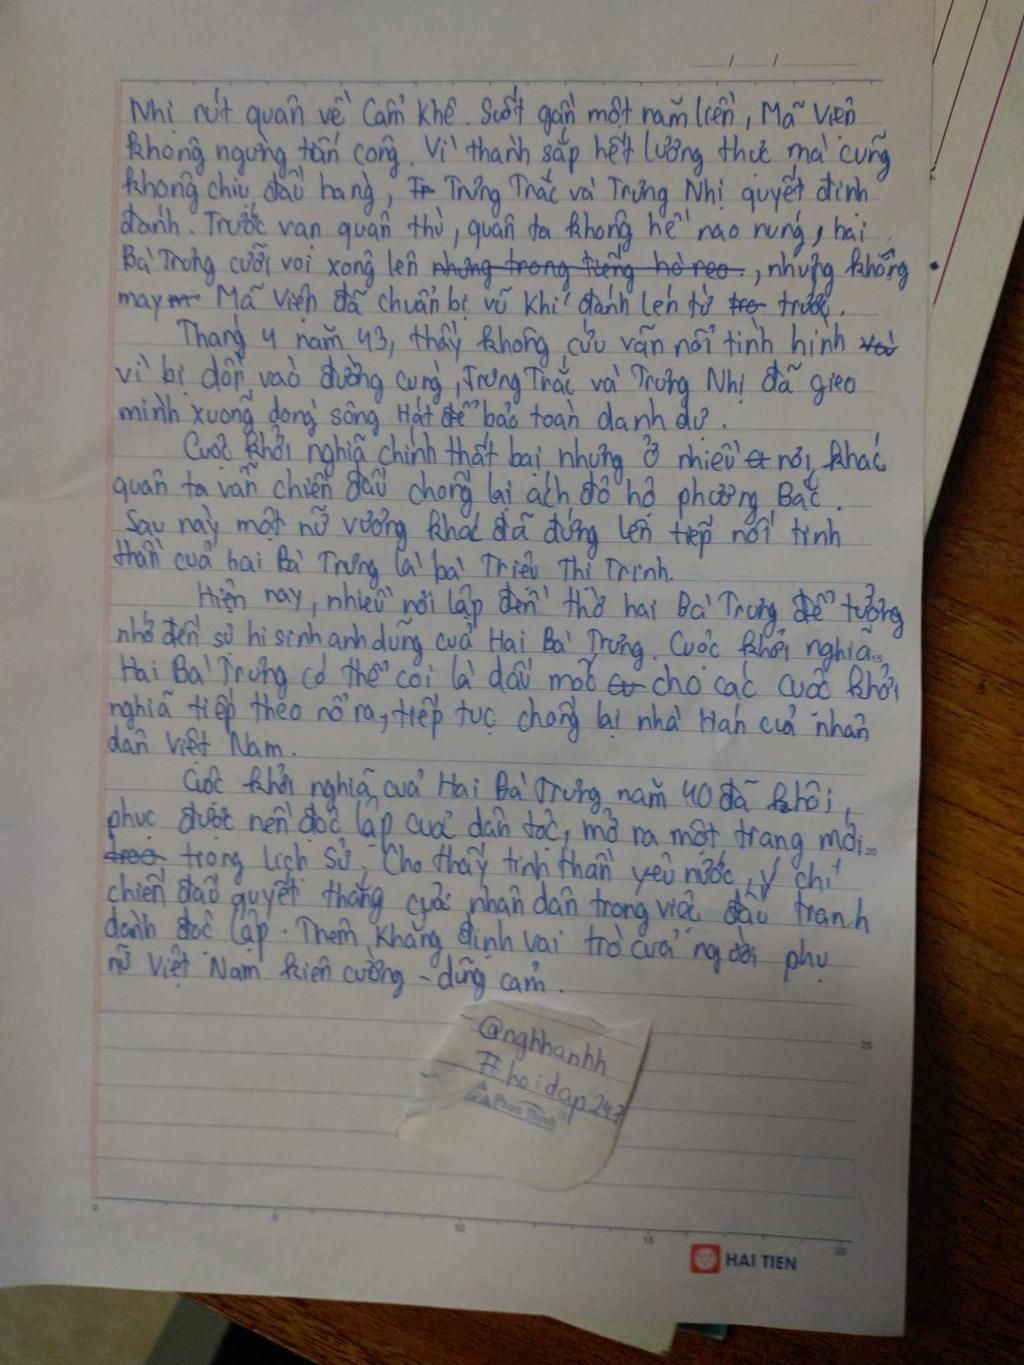 Nhị rút quân về Cấm Khê. Suốt gần một năm liền, Mã Viện
không ngừng tấn công. Vì thành sắp hết lương thực mà cũng
không chịu đầu hàng, Tr Trưng Trắc và Trưng Nhị quyết định
đánh. Trước vạn quân thù, quân ta không hề nao núng, hai
Bà Trưng cưỡi voi xông lên nhưng trong tiếng hò reo., nhưng không
may Mã Viện đã chuẩn bị vũ khí đánh lén từ tro trước.
Tháng 4 năm 43, thấy không cứu vãn nổi tình hình và
vì bị dồn vào đường cùng, Trưng Trắc và Trưng Nhị đã gieo
mình xuống dòng sông Hát để bảo toàn danh dự.
Cuộc khởi nghĩa chính thất bại nhưng ở nhiều nơi khác
quân ta vẫn chiến đấu chống lại ách đô hộ phương Bắc.
Sau này một nữ vương khác đã đứng lên tiếp nối tinh
thần của hai Bà Trưng là bà Triệu Thị Trinh.
Hiện nay, nhiều nơi lập đền thờ hai Bà Trưng để tưởng
nhớ đến sự hi sinh anh dũng của Hai Bà Trưng. Cuộc khởi nghĩa
15
Hai Bà Trưng có thể coi là dấu mốc cho các cuộc khởi
nghĩa tiếp theo nổ ra, tiếp tục chống lại nhà Hán của nhân
dân Việt Nam.
Cuộc khởi nghĩa của Hai Bà Trưng năm 40 đã khôi
phục được nền độc lập của dân tộc, mở ra một trang mới
20
trong lịch sử. Cho thấy tinh thần yêu nước, ý chí
chiến đấu quyết thắng của nhân dân trong việc đấu tranh
dành độc lập. Thêm khẳng định vai trò của người phụ
nữ Việt Nam kiên cường - dũng cảm.
@nghhanhh
#hoidap247
25
0 5 10 15 20
HAI TIEN